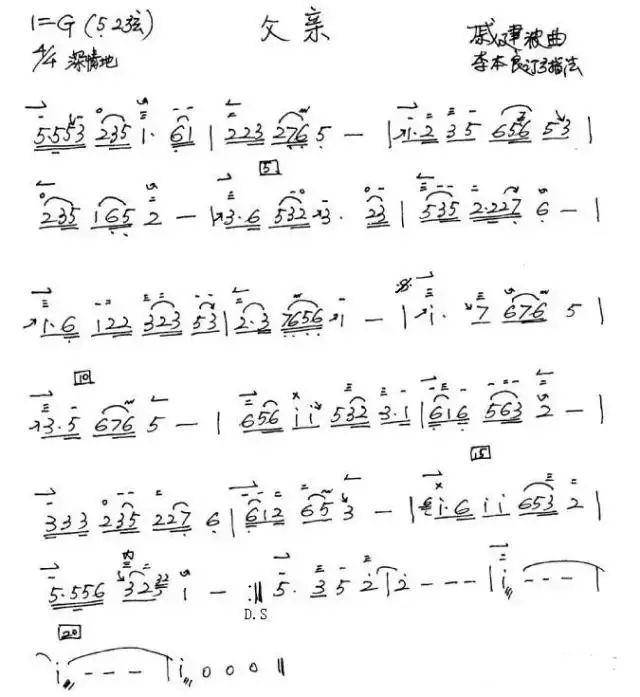 1=G (5 2弦) 父亲 戚建波曲
4/4 深情地 李本良订弓指法
5·553 235 1· 61 | 223 276 5 — | 1·2 35 656 53 |
5
235 165 2 — | 3·6 532 3· 23 | 535 2·227 6 — |
1·6 122 323 53 | 2·3 7656 1 — | i· 7 676 5 |
10
3·5 676 5 — | 656 ii 532 3·1 | 616 563 2 — |
15
333 235 227 6 | 612 65 3 — | i·6 ii 653 2 |
5·556 325 1 — :‖ 5· 3 5 2 | 2 - - - | i - - - |
D.S
20
i - - - | i 0 0 0 ‖